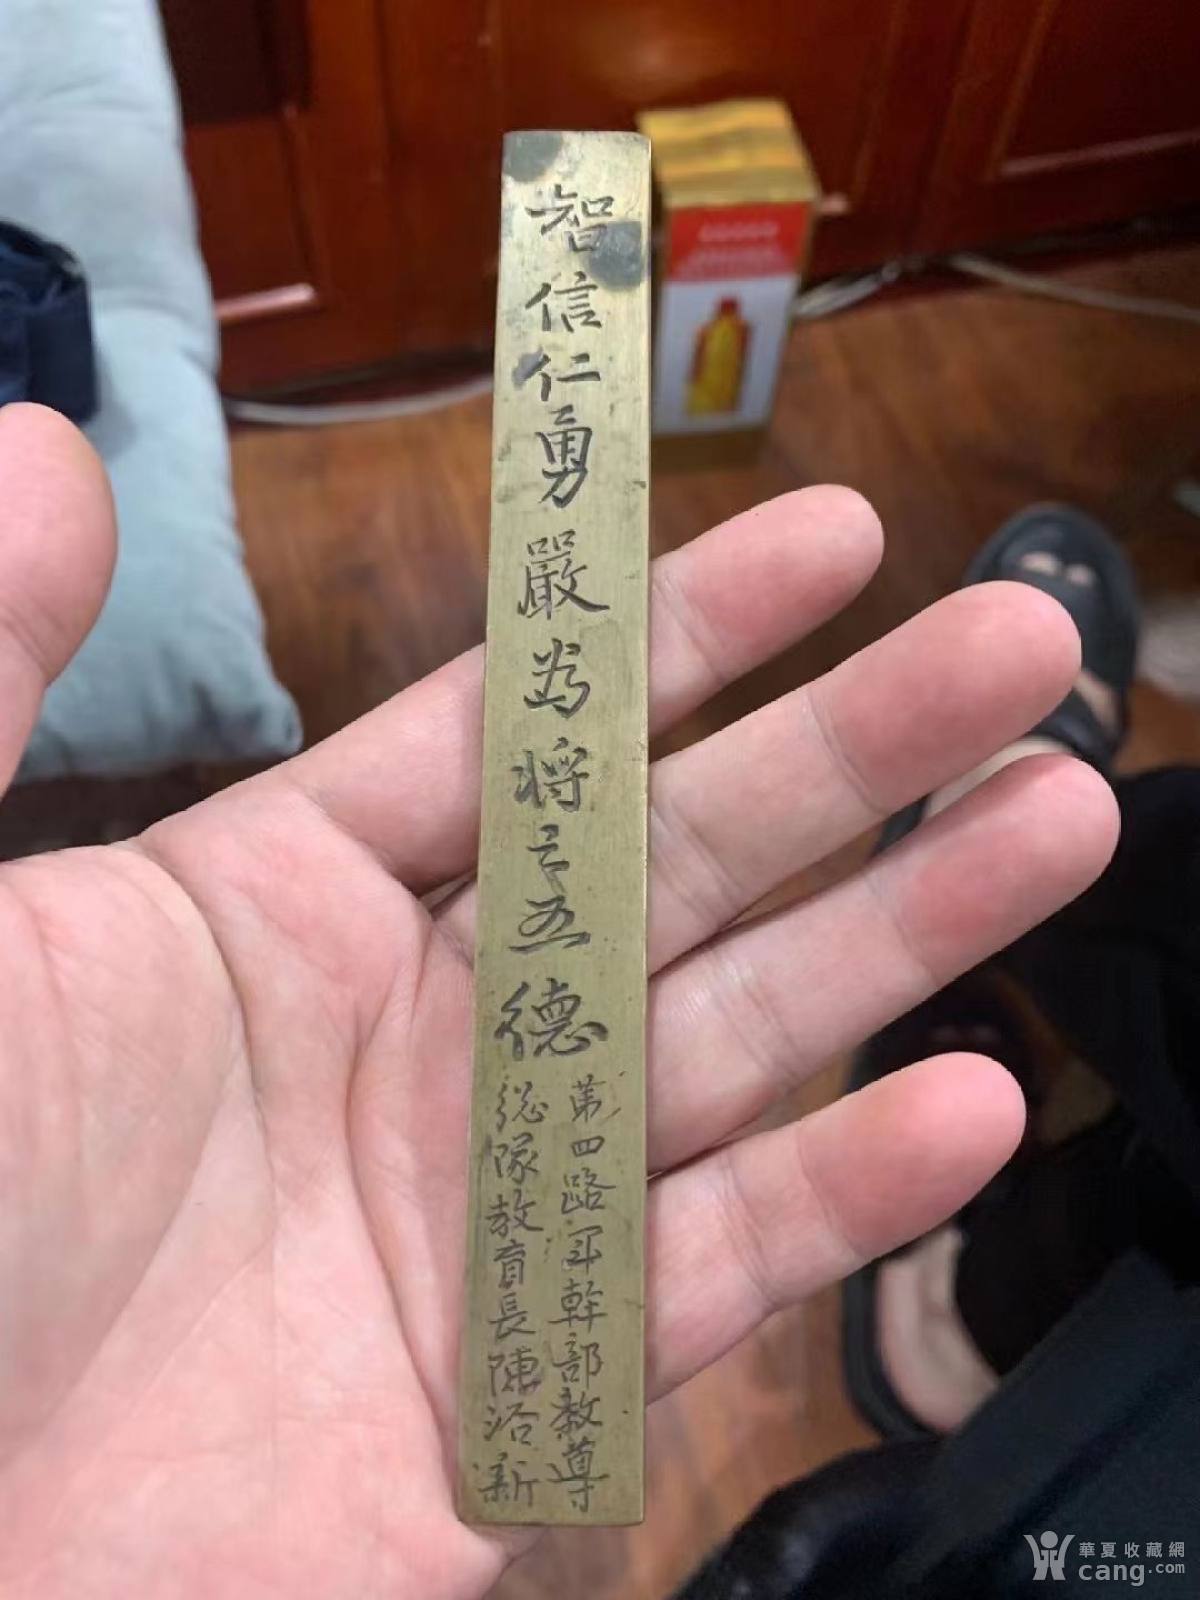 智信仁勇嚴為將之五德
第四路軍幹部教導
總隊教育長陳洽新
華夏收藏網
cang.com